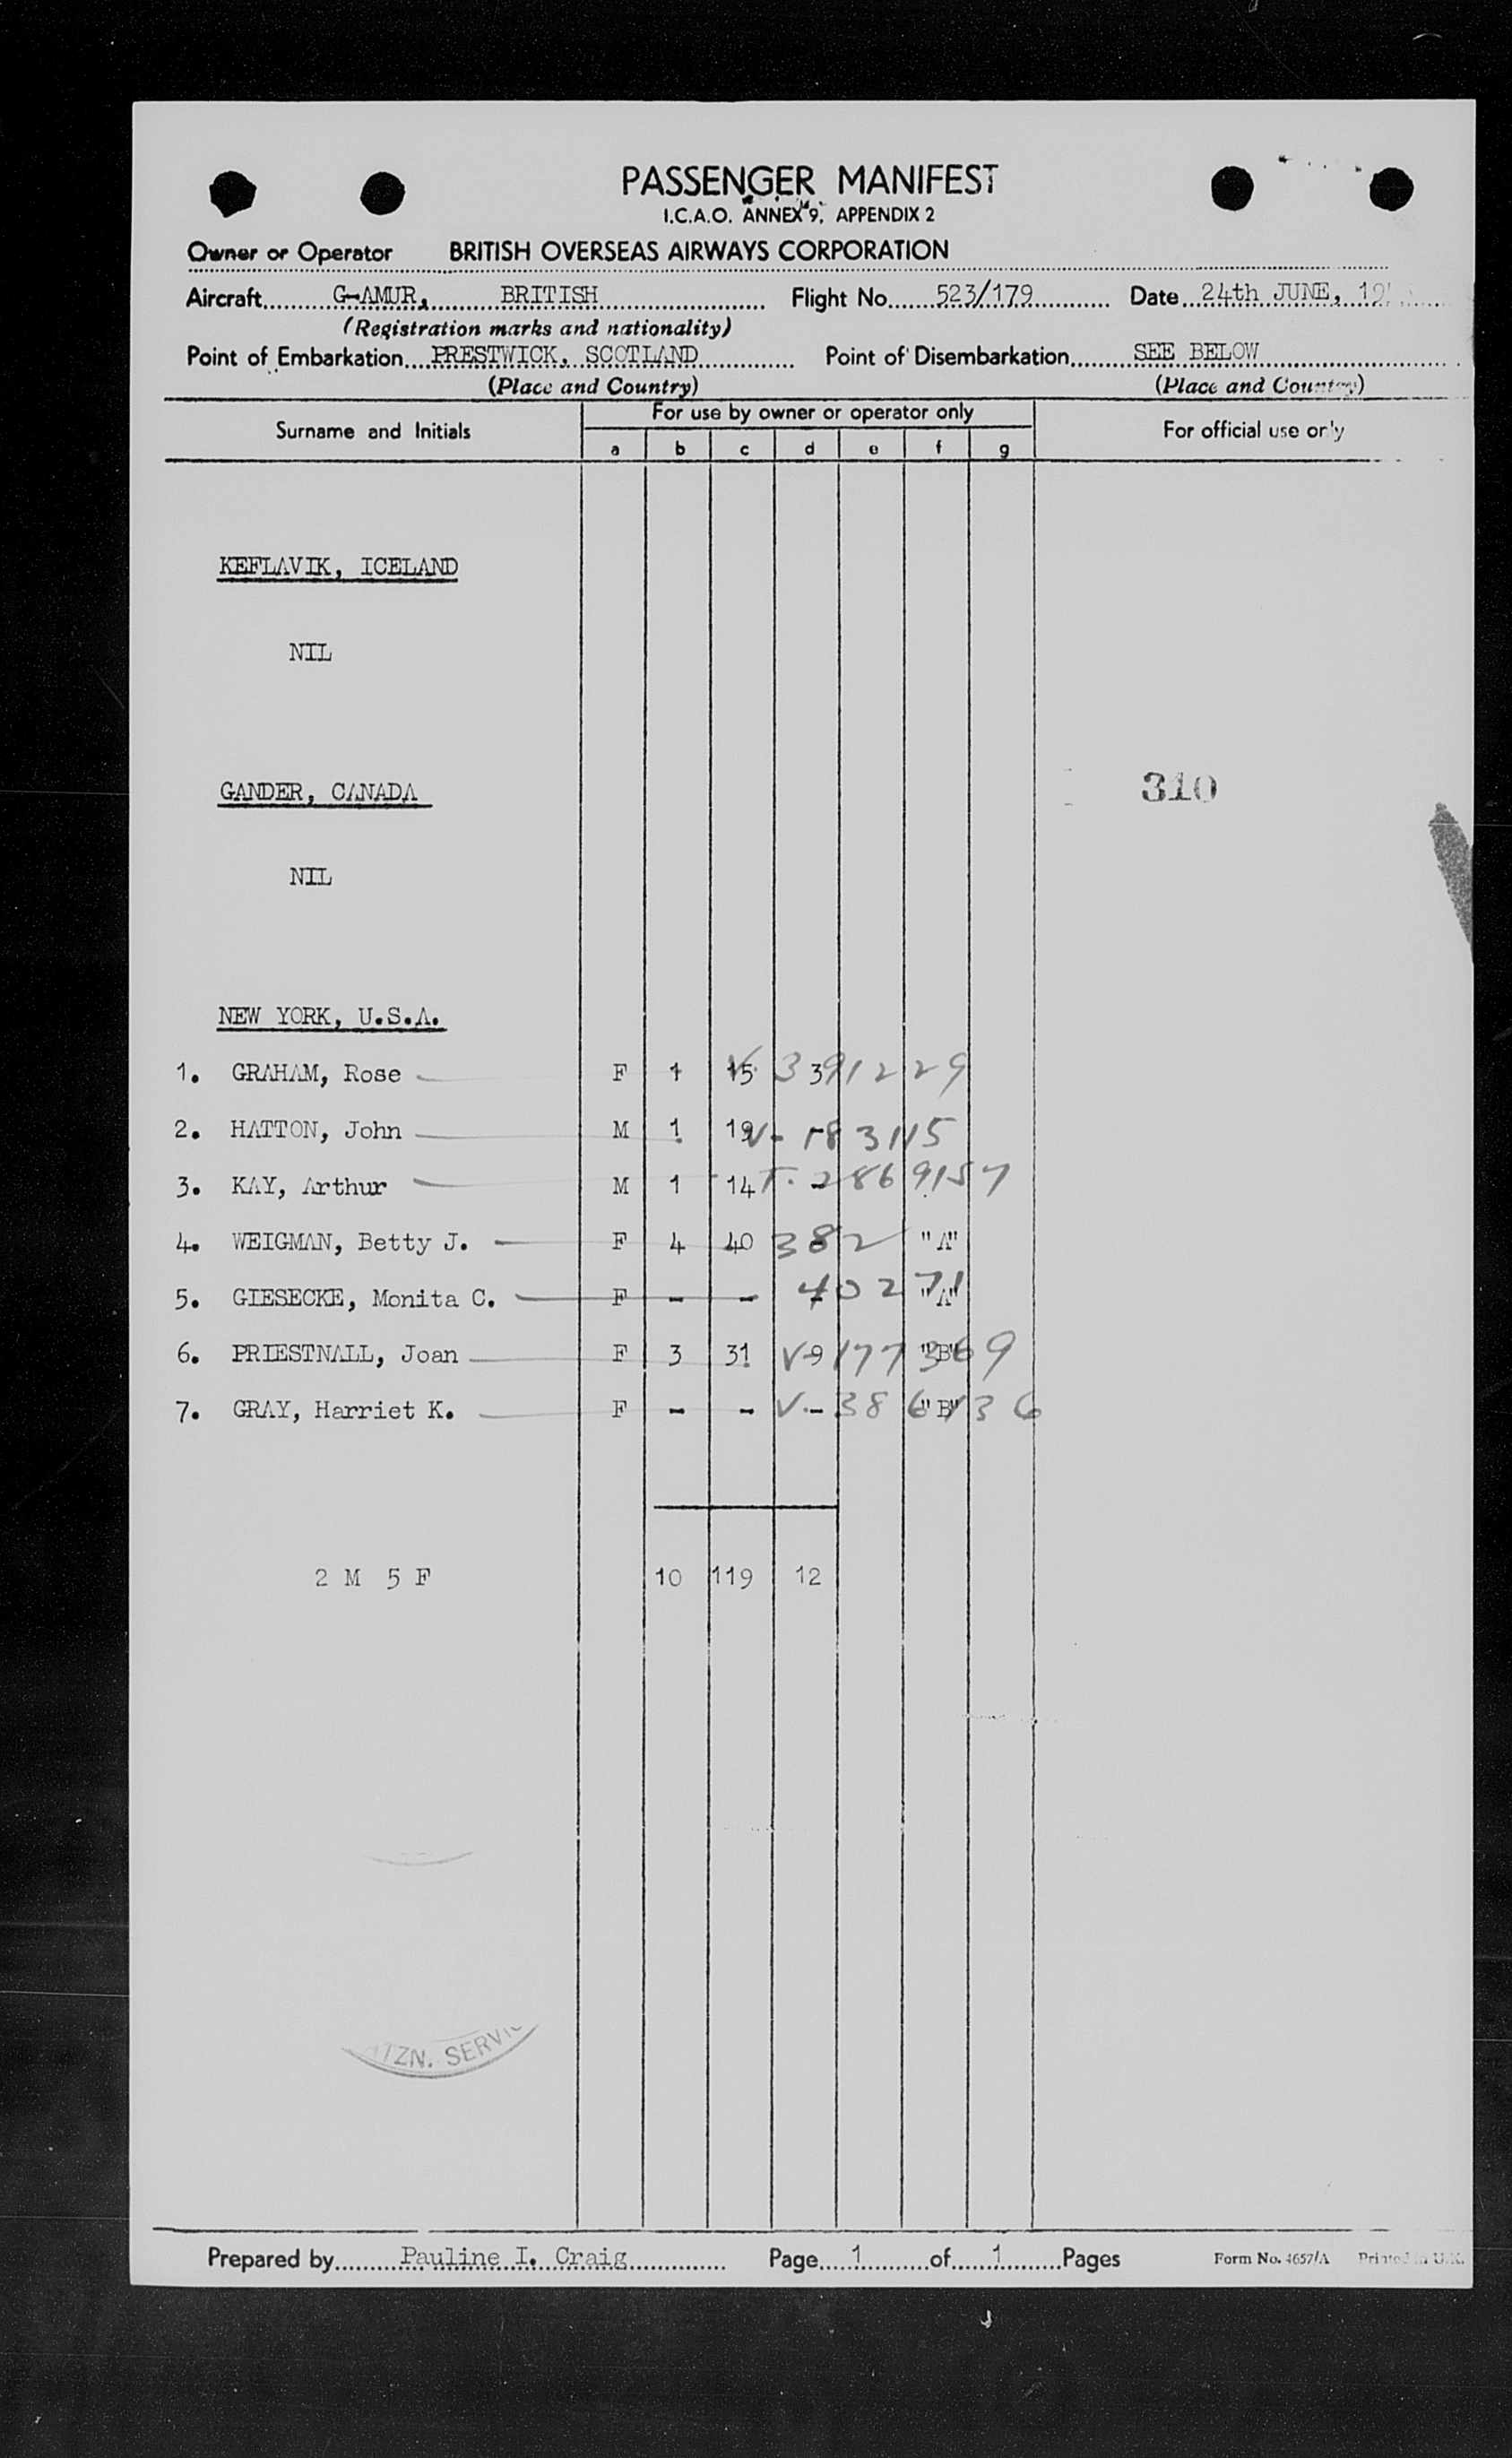 PASSENGER MANIFEST
I.C.A.O. ANNEX 9, APPENDIX 2
Owner or Operator BRITISH OVERSEAS AIRWAYS CORPORATION
Aircraft G-AMUR, BRITISH Flight No. 523/179 Date 24th JUNE,
(Registration marks and nationality)
Point of Embarkation PRESTWICK, SCOTLAND Point of Disembarkation SEE BELOW
(Place and Country) (Place and Country)
Surname and Initials For use by owner or operator only For official use only
a b c d e f g
KEFLAVIK, ICELAND
NIL
GANDER, CANADA 310
NIL
NEW YORK, U.S.A.
1. GRAHAM, Rose F 1 15 3 V. 391229
2. HATTON, John M 1 19 - V- 183115
3. KAY, Arthur M 1 14 - T. 2869157
4. WEIGMAN, Betty J. F 4 40 - 382 "A"
5. GIESECKE, Monita C. F - - - 40271 "A"
6. PRIESTNALL, Joan F 3 31 9 V- 177369 "B"
7. GRAY, Harriet K. F - - - V- 386136 "B"
2 M 5 F 10 119 12
TZN. SERVIC
Prepared by Pauline I. Craig Page 1 of 1 Pages Form No. 4657/A Printed in U.K.